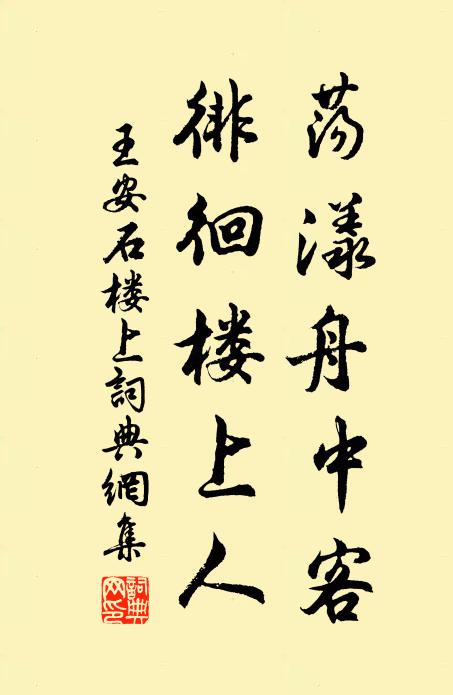 荡漾舟中客
徘徊楼上人
王安石楼上詞典網集
詞典網印